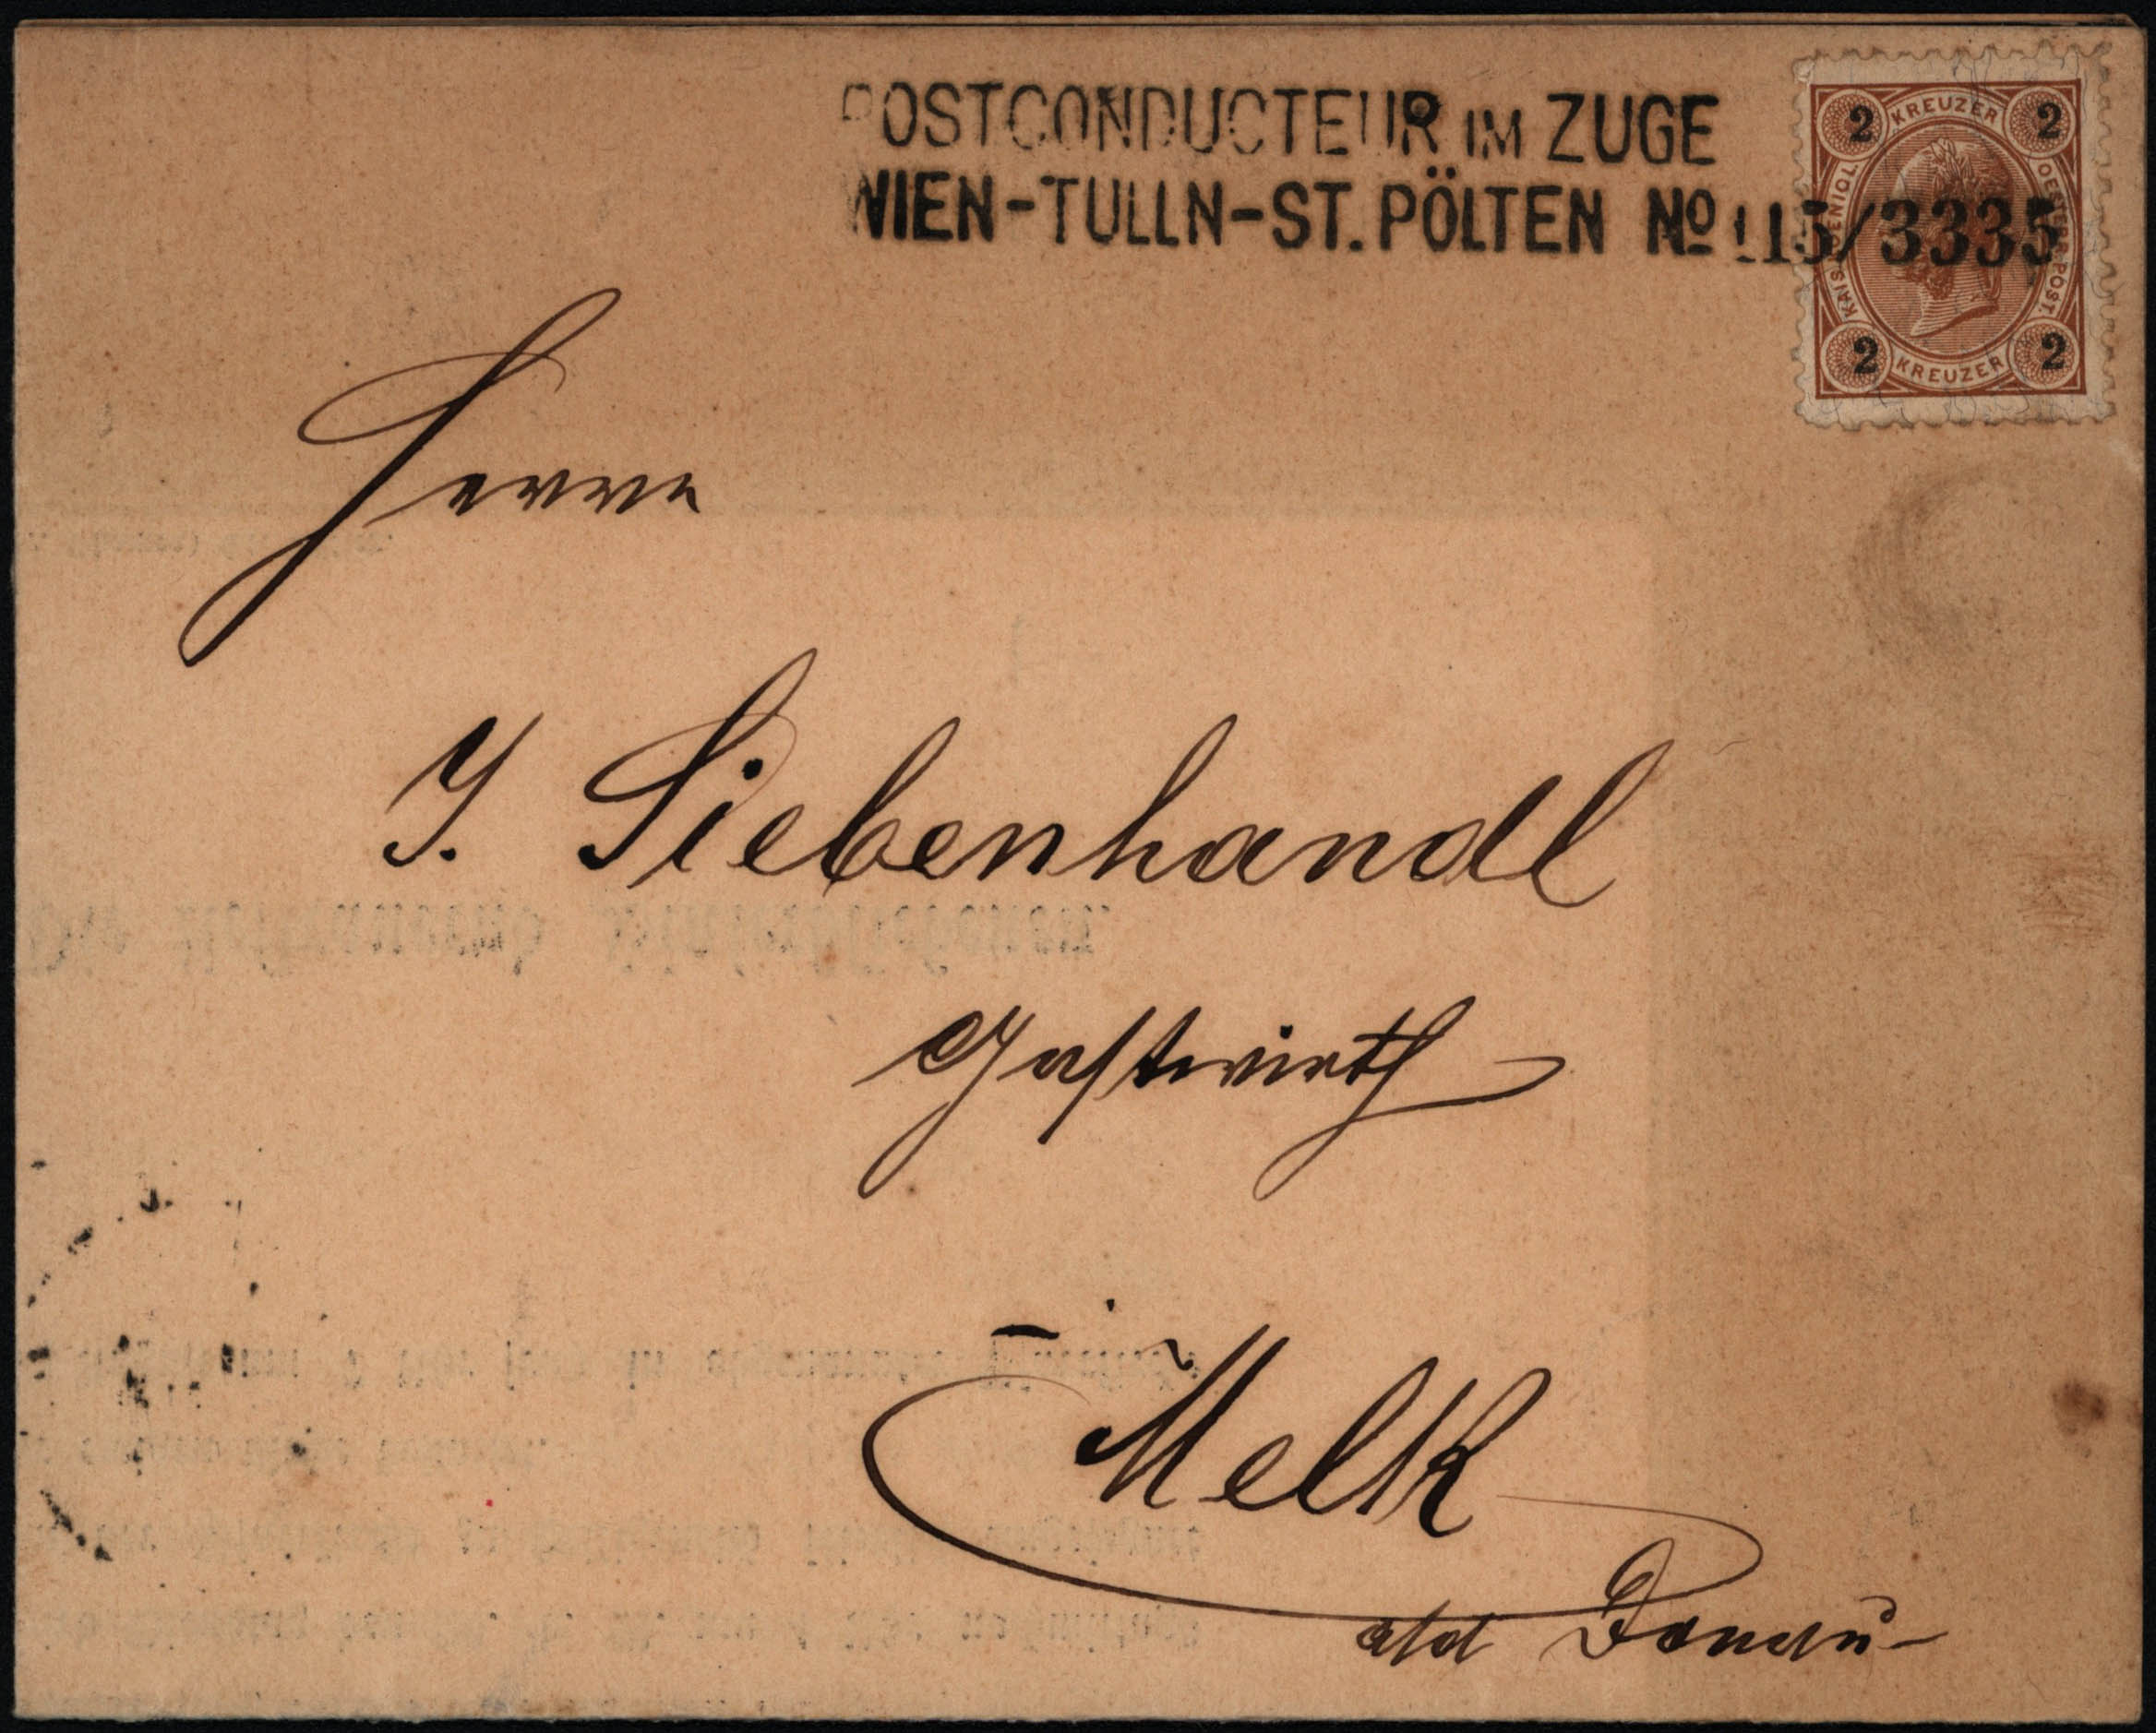 POSTCONDUCTEUR IM ZUGE
WIEN-TULLN-ST. PÖLTEN No 115/3335
2 KREUZER 2
KAIS. KOENIGL. OESTERR. POST.
2 KREUZER 2
Herrn
J. Siebenhandl
Gastwirth
Melk
a/d Donau